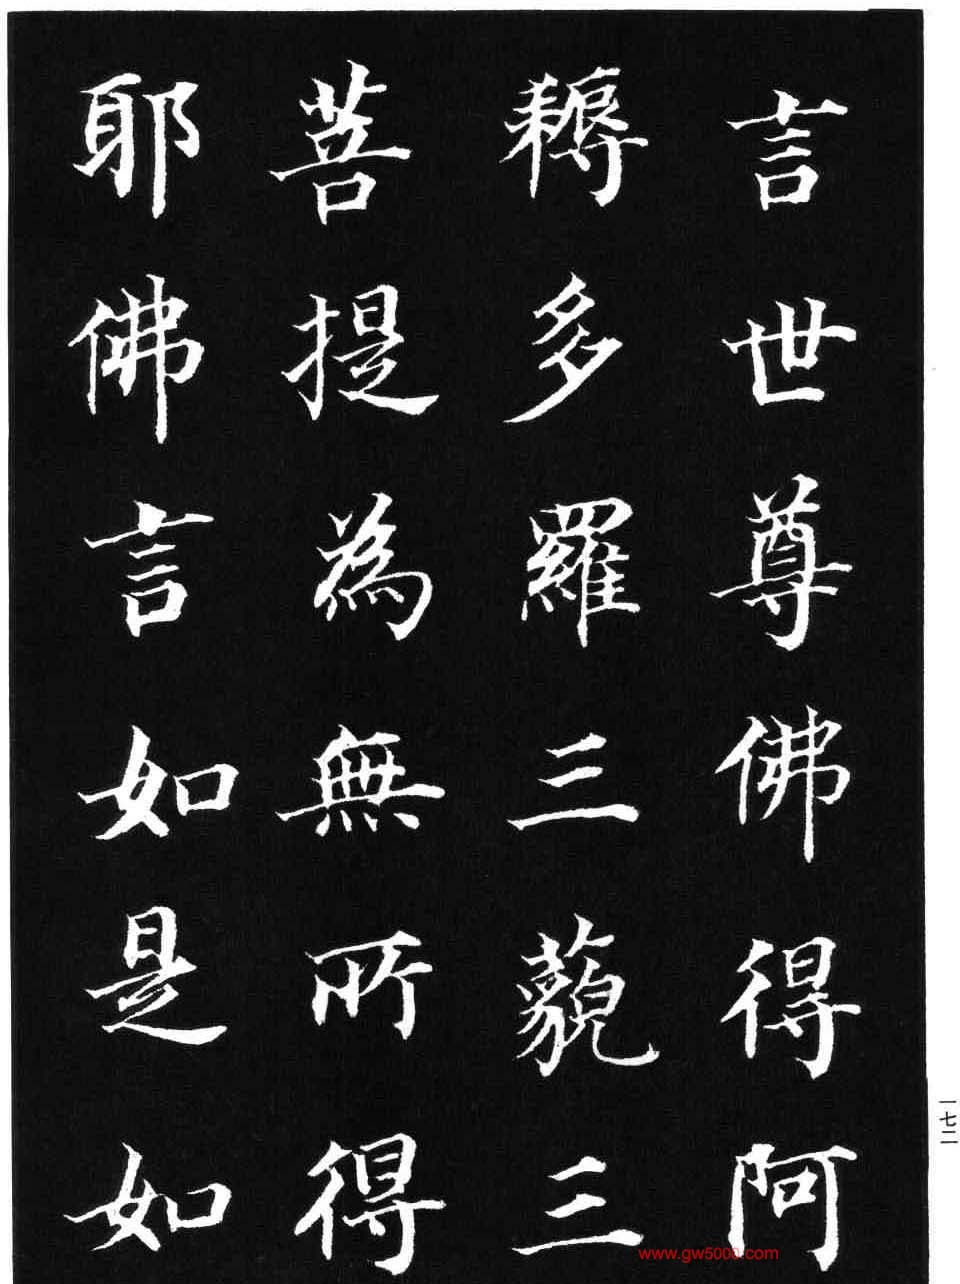 言世尊佛得阿
耨多羅三藐三
菩提為無所得
耶佛言如是如
一七二
www.gw5000.com